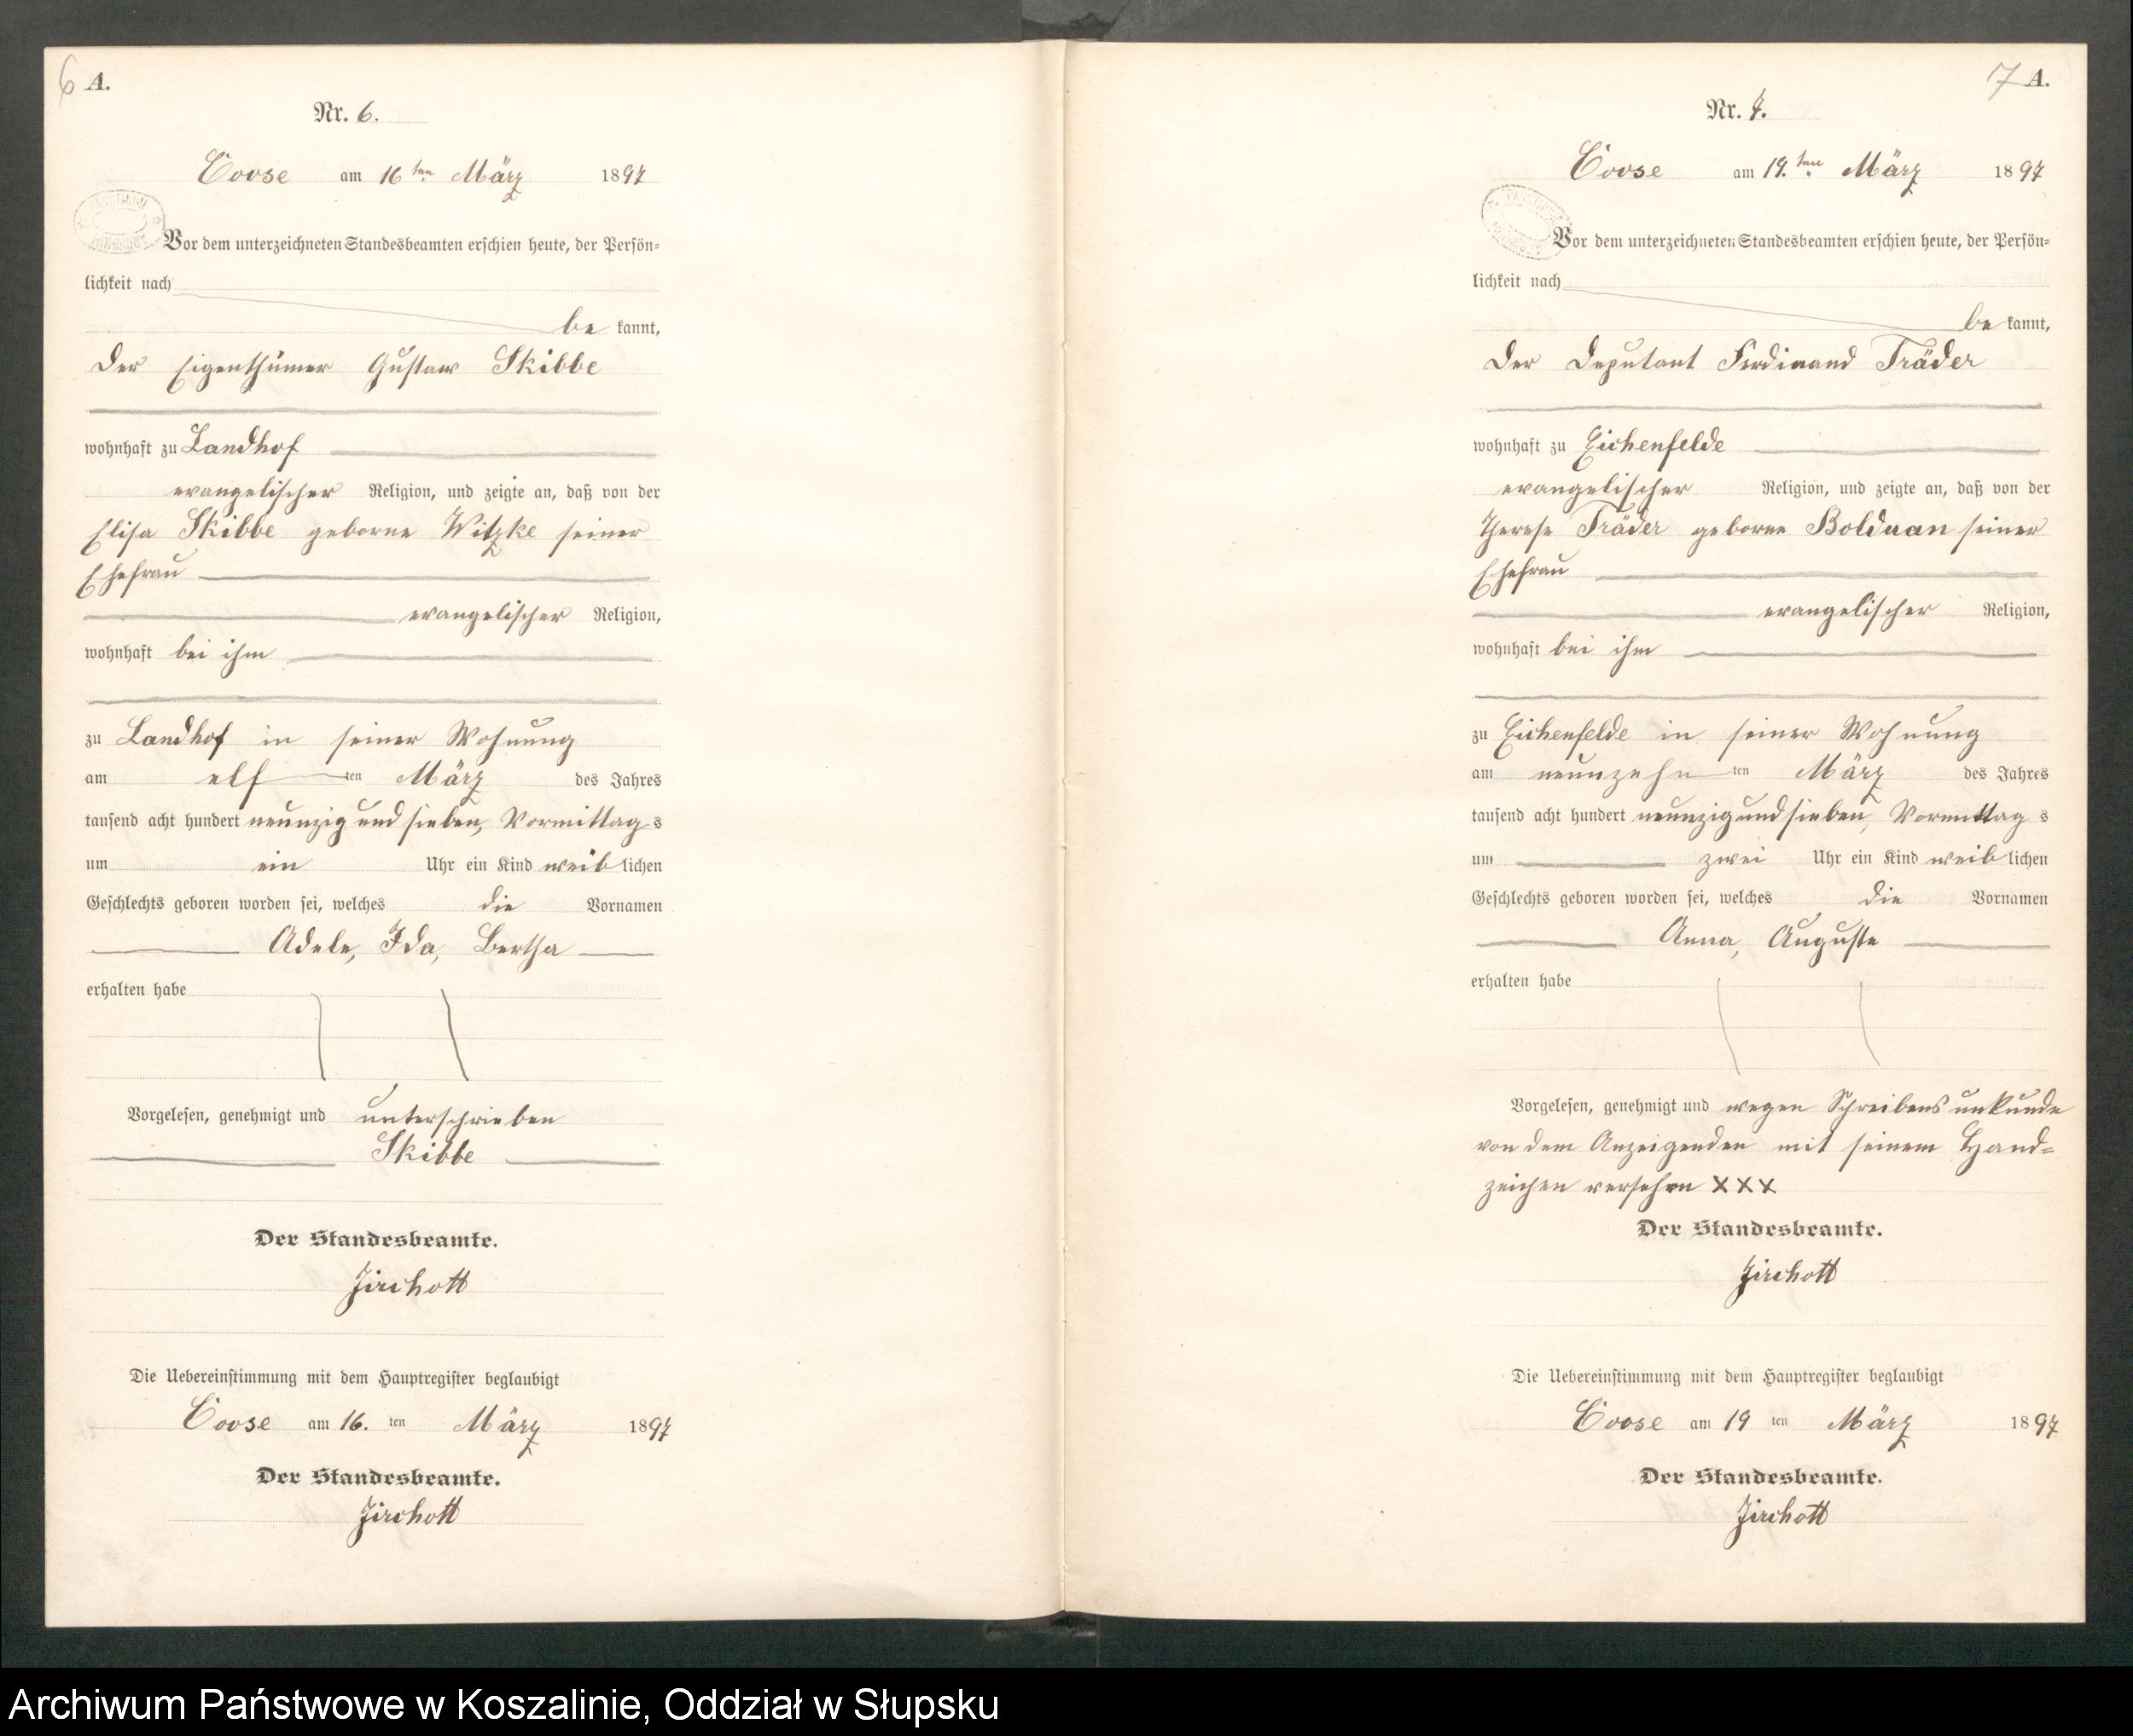 6 A.
Nr. 6.
Coose am 16ten März 1897
Vor dem unterzeichneten Standesbeamten erschien heute, der Persön=
lichkeit nach
be kannt,
der Eigenthümer Gustav Skibbe
wohnhaft zu Landhof
evangelischer Religion, und zeigte an, daß von der
Elisa Skibbe geborne Witzke seiner
Ehefrau
evangelischer Religion,
wohnhaft bei ihm
zu Landhof in seiner Wohnung
am elf ten März des Jahres
tausend acht hundert neunzig und sieben, Vormittag s
um ein Uhr ein Kind weib lichen
Geschlechts geboren worden sei, welches die Vornamen
Adele, Ida, Bertha
erhalten habe
Vorgelesen, genehmigt und unterschrieben
Skibbe
Der Standesbeamte.
Jirchott
Die Uebereinstimmung mit dem Hauptregister beglaubigt
Coose am 16. ten März 1897
Der Standesbeamte.
Jirchott
7 A.
Nr. 7.
Coose am 19.ten März 1897
Vor dem unterzeichneten Standesbeamten erschien heute, der Persön=
lichkeit nach
be kannt,
der Deputant Ferdinand Träder
wohnhaft zu Eichenfelde
evangelischer Religion, und zeigte an, daß von der
Therese Träder geborne Bolduan seiner
Ehefrau
evangelischer Religion,
wohnhaft bei ihm
zu Eichenfelde in seiner Wohnung
am neunzehn ten März des Jahres
tausend acht hundert neunzig und sieben, Vormittag s
um zwei Uhr ein Kind weib lichen
Geschlechts geboren worden sei, welches die Vornamen
Anna, Auguste
erhalten habe
Vorgelesen, genehmigt und wegen Schreibensunkunde
von dem Anzeigenden mit seinem Hand=
zeichen versehen XXX
Der Standesbeamte.
Jirchott
Die Uebereinstimmung mit dem Hauptregister beglaubigt
Coose am 19 ten März 1897
Der Standesbeamte.
Jirchott
Archiwum Państwowe w Koszalinie, Oddział w Słupsku